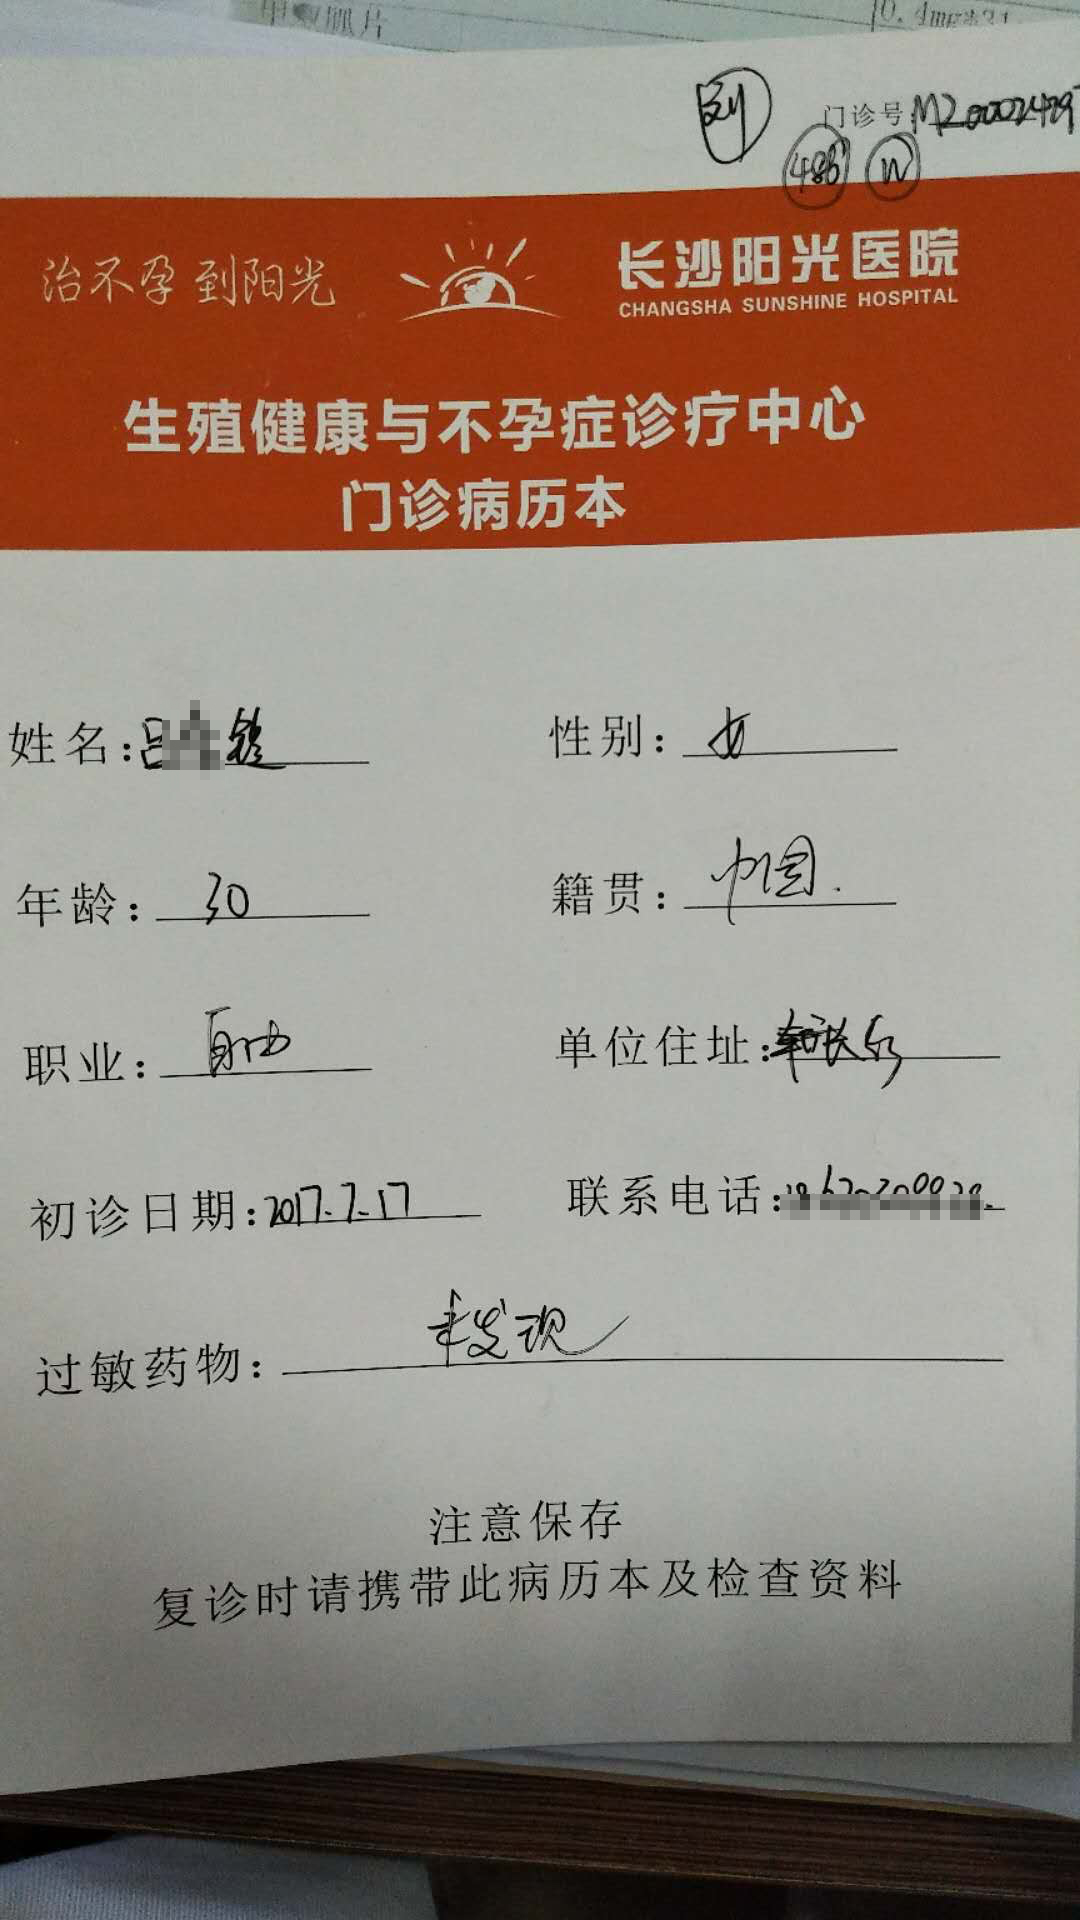 刘
门诊号: MZ00002429
486 W
治不孕 到阳光
长沙阳光医院
CHANGSHA SUNSHINE HOSPITAL
生殖健康与不孕症诊疗中心
门诊病历本
姓名: 吕
性别: 女
年龄: 30
籍贯: 中国.
职业: 自由
单位住址:
初诊日期: 2017.7.17
联系电话:
过敏药物: 未发现
注意保存
复诊时请携带此病历本及检查资料